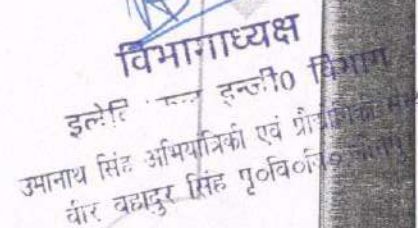 विभागाध्यक्ष
इन्जी0 विभाग
उमानाथ सिंह अभियांत्रिकी एवं
वीर बहादुर सिंह पू०वि०वि०